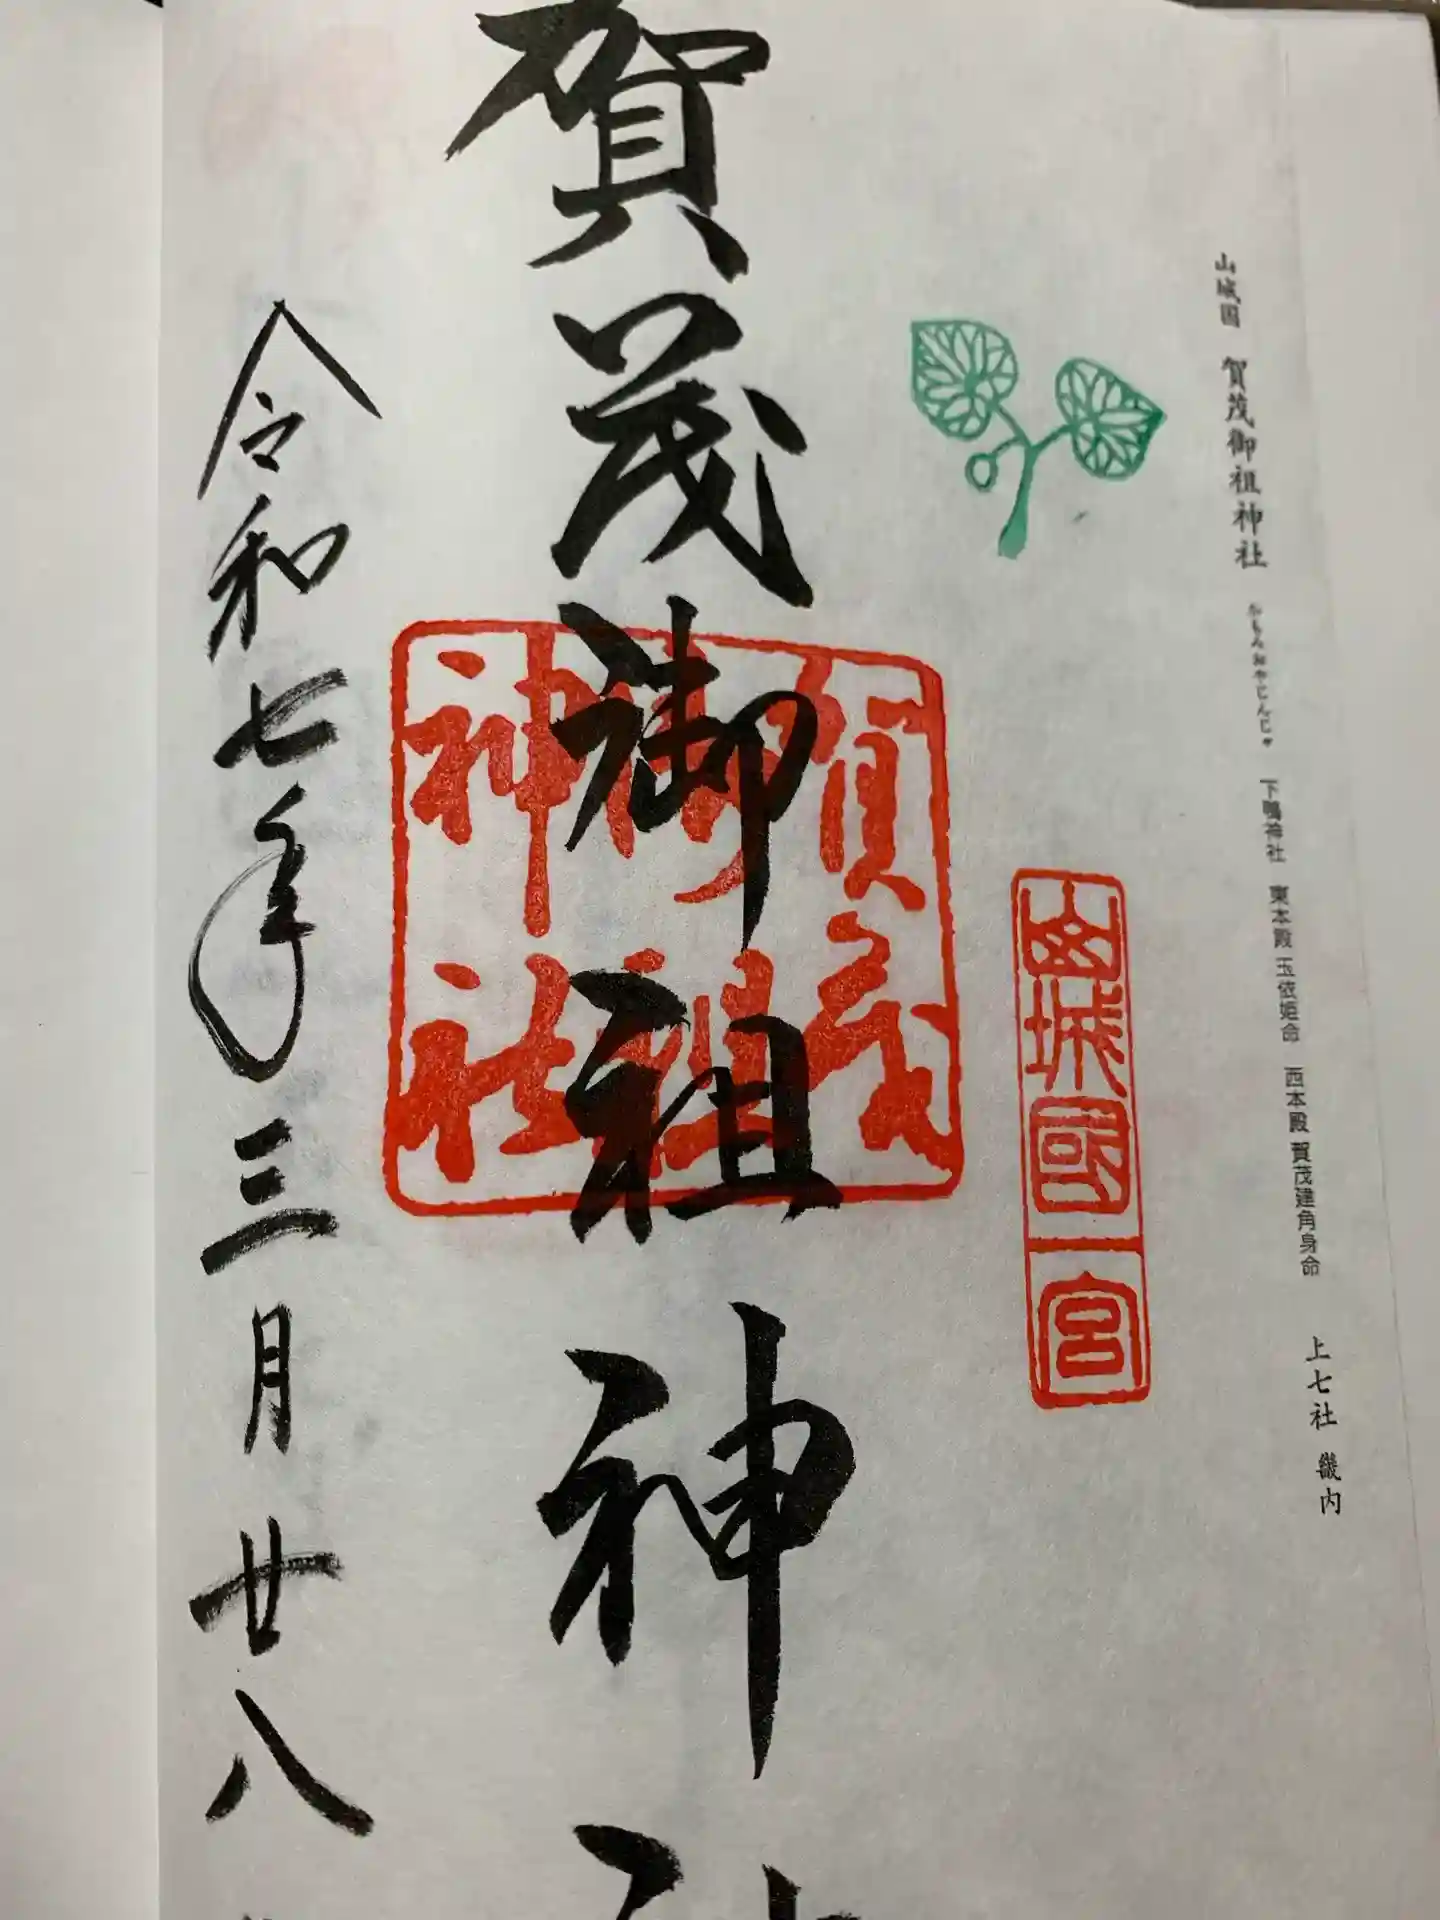 山城国 賀茂御祖神社 かもみおやじんじゃ 下鴨神社 東本殿 玉依姫命 西本殿 賀茂建角身命 上七社 畿内
山城國一宮
賀茂御祖神
賀茂
御祖
神社
令和七年三月廿八